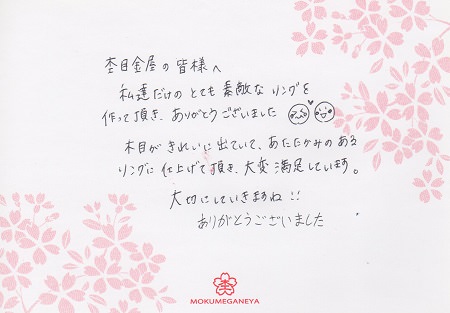 杢目金屋の皆様へ
私達だけのとても素敵なリングを
作って頂き、ありがとうございました
木目がきれいに出ていて、あたたかみのある
リングに仕上げて頂き、大変満足しています。
大切にしていきますね!!
ありがとうございました
MOKUMEGANEYA